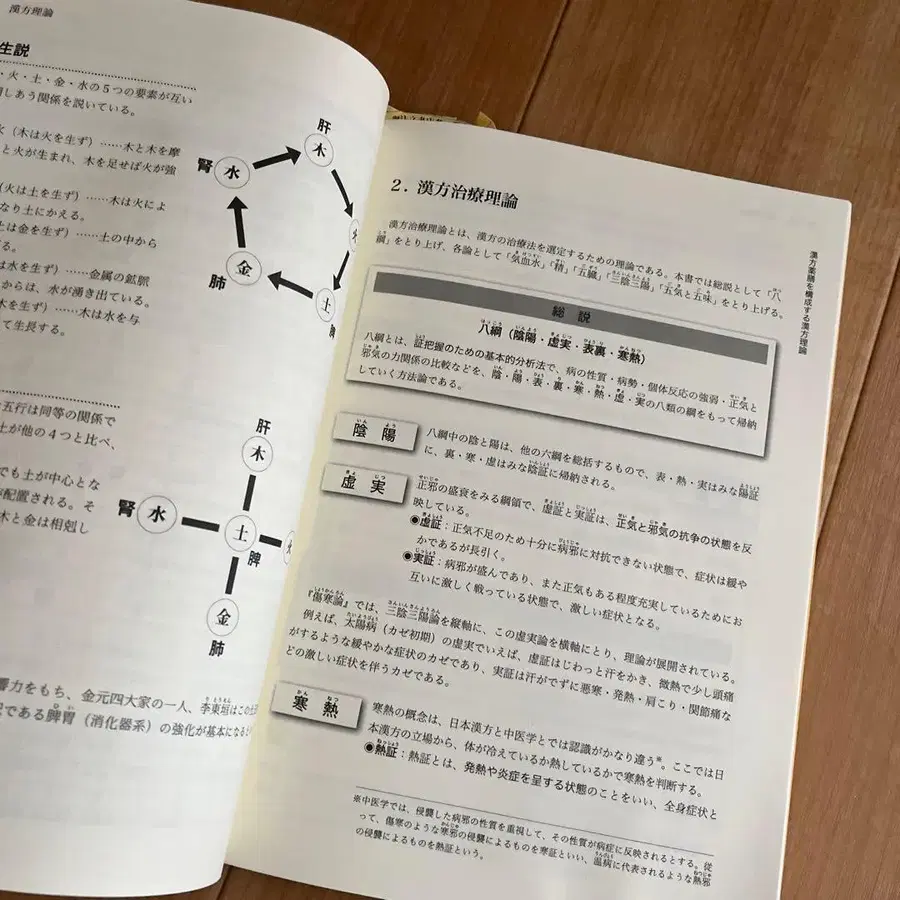 漢方理論
生説
・火・土・金・水の5つの要素が互い
しあう関係を説いている。
(木は火を生ず)……木と木を摩
と火が生まれ、木を足せば火が強
(火は土を生ず)……木は火によ
なり土にかえる。
は金を生ず)……土の中から
る。
は水を生ず)……金属の鉱脈
からは、水が湧き出ている。
木を生ず)……木は水を与
て生長する。
肝
木
腎
水
金
肺
土
脾
五行は同等の関係で
土が他の4つと比べ、
でも土が中心とな
配置される。そ
木と金は相剋し
肝
木
腎
水
土
脾
金
肺
響力をもち、金元四大家の一人、李東垣はこの土
である脾胃(消化器系)の強化が基本になると
2.漢方治療理論
漢方治療理論とは、漢方の治療法を選定するための理論である。本書では総説として「八
綱」をとり上げ、各論として「気血水」「精」「五臓」「三陰三陽」「五気と五味」をとり上げる。
総説
八綱(陰陽・虚実・表裏・寒熱)
八綱とは、証把握のための基本的分析法で、病の性質・病勢・個体反応の強弱・正気と
邪気の力関係の比較などを、陰・陽・表・裏・寒・熱・虚・実の八類の綱をもって帰納
していく方法論である。
陰陽
八綱中の陰と陽は、他の六綱を総括するもので、表・熱・実はみな陽証
に、裏・寒・虚はみな陰証に帰納される。
虚実
正邪の盛衰をみる綱領で、虚証と実証は、正気と邪気の抗争の状態を反
映している。
◉虚証:正気不足のため十分に病邪に対抗できない状態で、症状は緩や
かであるが長引く。
◉実証:病邪が盛んであり、また正気もある程度充実しているためにお
互いに激しく戦っている状態で、激しい症状となる。
『傷寒論』では、三陰三陽論を縦軸に、この虚実論を横軸にとり、理論が展開されている。
例えば、太陽病(カゼ初期)の虚実でいえば、虚証はじわっと汗をかき、微熱で少し頭痛
がするような緩やかな症状のカゼであり、実証は汗がでずに悪寒・発熱・肩こり・関節痛な
どの激しい症状を伴うカゼである。
寒熱
寒熱の概念は、日本漢方と中医学とでは認識がかなり違う※。ここでは日
本漢方の立場から、体が冷えているか熱しているかで寒熱を判断する。
◉熱証:熱証とは、発熱や炎症を呈する状態のことをいい、全身症状と
※中医学では、侵襲した病邪の性質を重視して、その性質が病症に反映されるとする。従
って、傷寒のような寒邪の侵襲によるものを寒証といい、温病に代表されるような熱邪
の侵襲によるものを熱証という。
漢方薬膳を構成する漢方理論